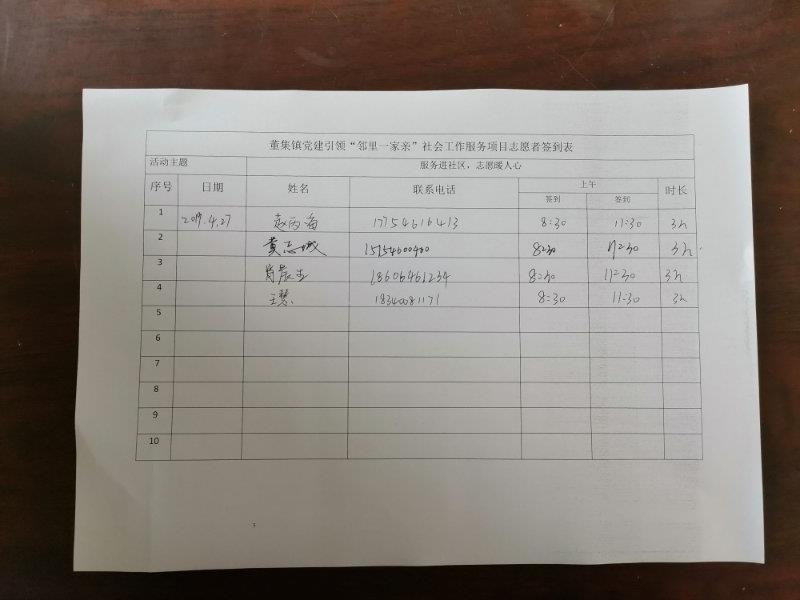 董集镇党建引领“邻里一家亲”社会工作服务项目志愿者签到表
活动主题 服务进社区，志愿暖人心
序号 日期 姓名 联系电话 上午 时长
签到 签到
1 2019.4.27 赵丙海 17754616413 8:30 11:30 3h
2 黄志城 15154600400 8:30 11:30 3h
3 18606461234 8:30 11:30 3h
4 王慧 18340081171 8:30 11:30 3h
5
6
7
8
9
10